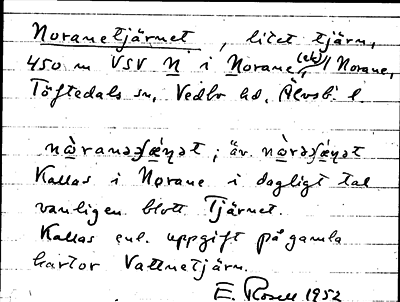 Noranetjärnet, litet tjärn,
450 m VSV N i Norane, (ek) Norane,
Töftedals sn, Vedbo hd, Älvsb. l.
nàranəʃǽṇət; äv. nàrəʃǽṇət
Kallas i Norane i dagligt tal
vanligen blott Tjärnet.
Kallas enl. uppgift på gamla
kartor Vattnetjärn.
E. Rosell 1952